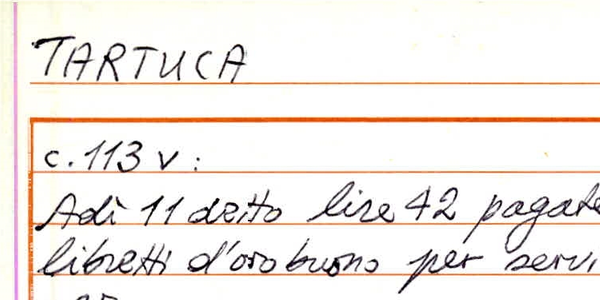 TARTUCA
c. 113 v :
Adì 11 detto lire 42 pagate
libretti d'oro buono per servi